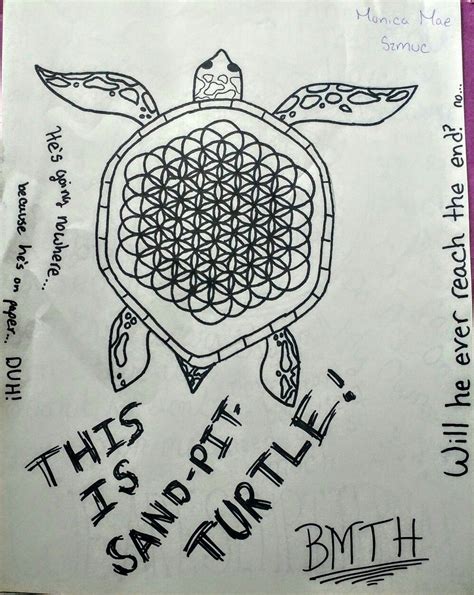 Monica Mae
Szmuc
He's going nowhere...
because he's on paper... DUH!
Will he ever reach the end? no...
THIS
IS
SAND-PIT-
TURTLE!
BMTH